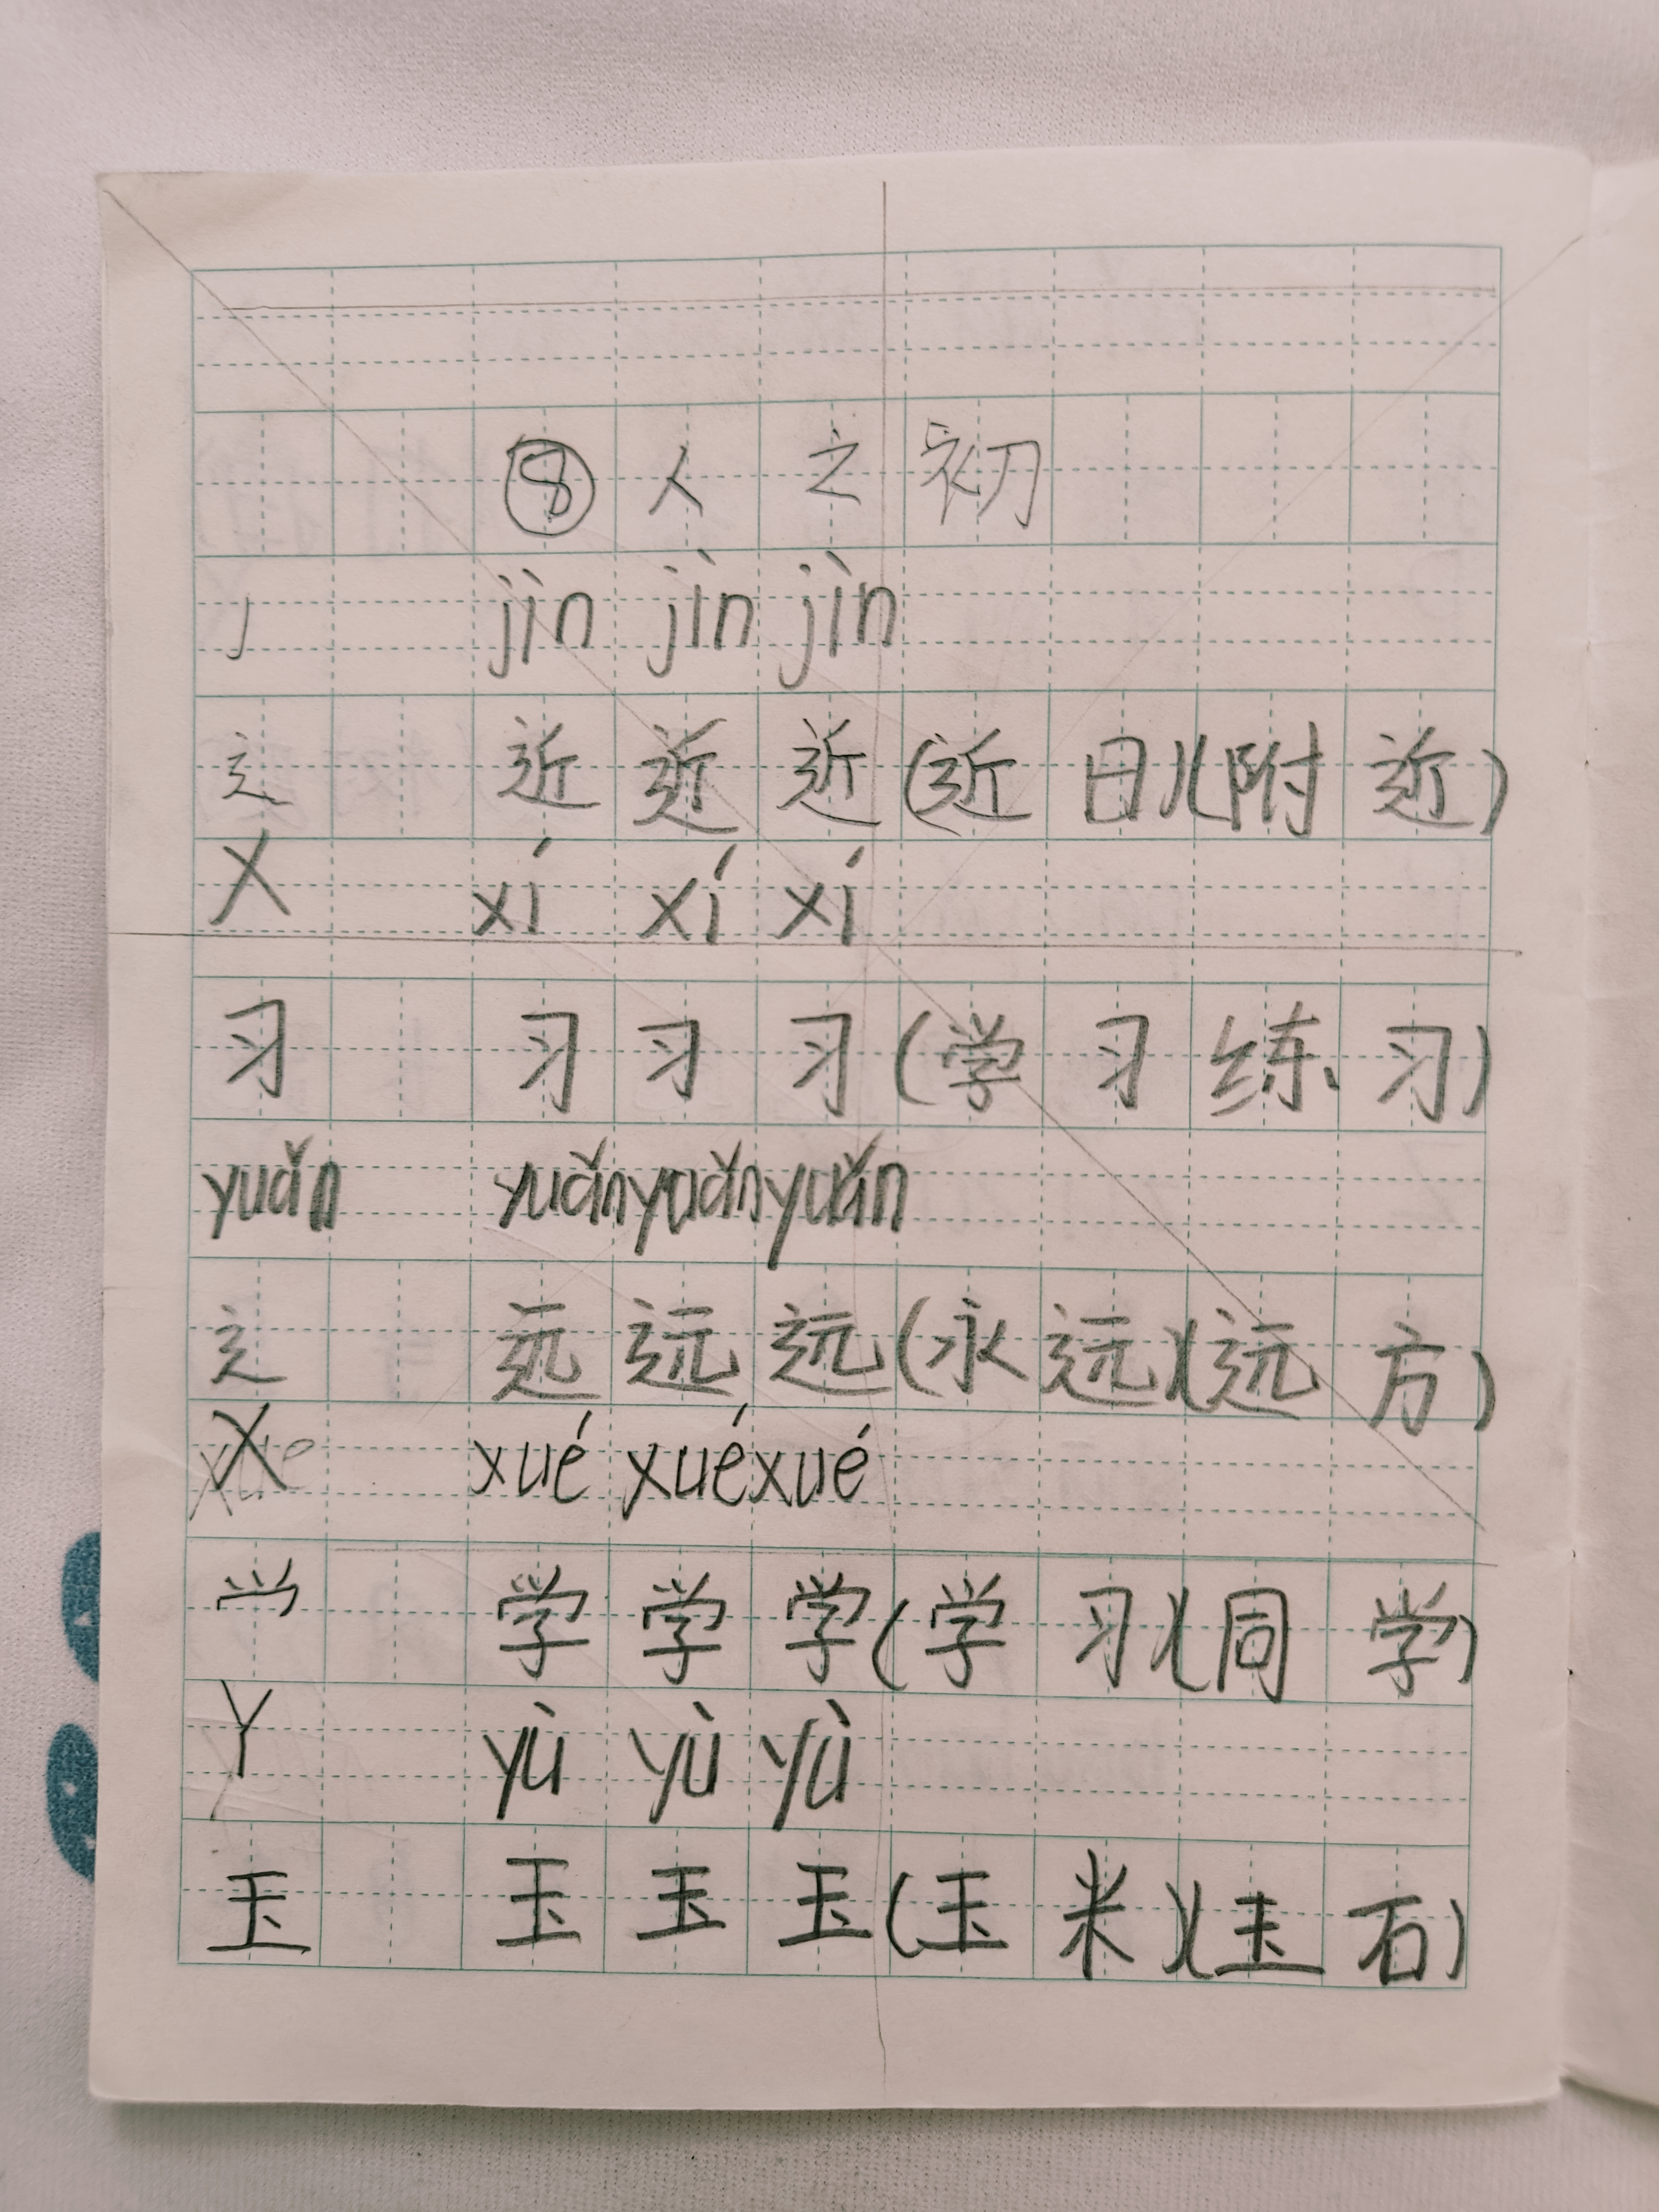 ⑧ 人之初
J jìn jìn jìn
辶 近 近 近 (近日)(附近)
X xí xí xí
习 习 习 习 (学习 练习)
yuǎn yuǎn yuǎn yuǎn
辶 远 远 远 (永远)(远方)
X xué xué xué
𰃮 学 学 学 (学习)(同学)
Y yù yù yù
玉 玉 玉 玉 (玉米)(玉石)